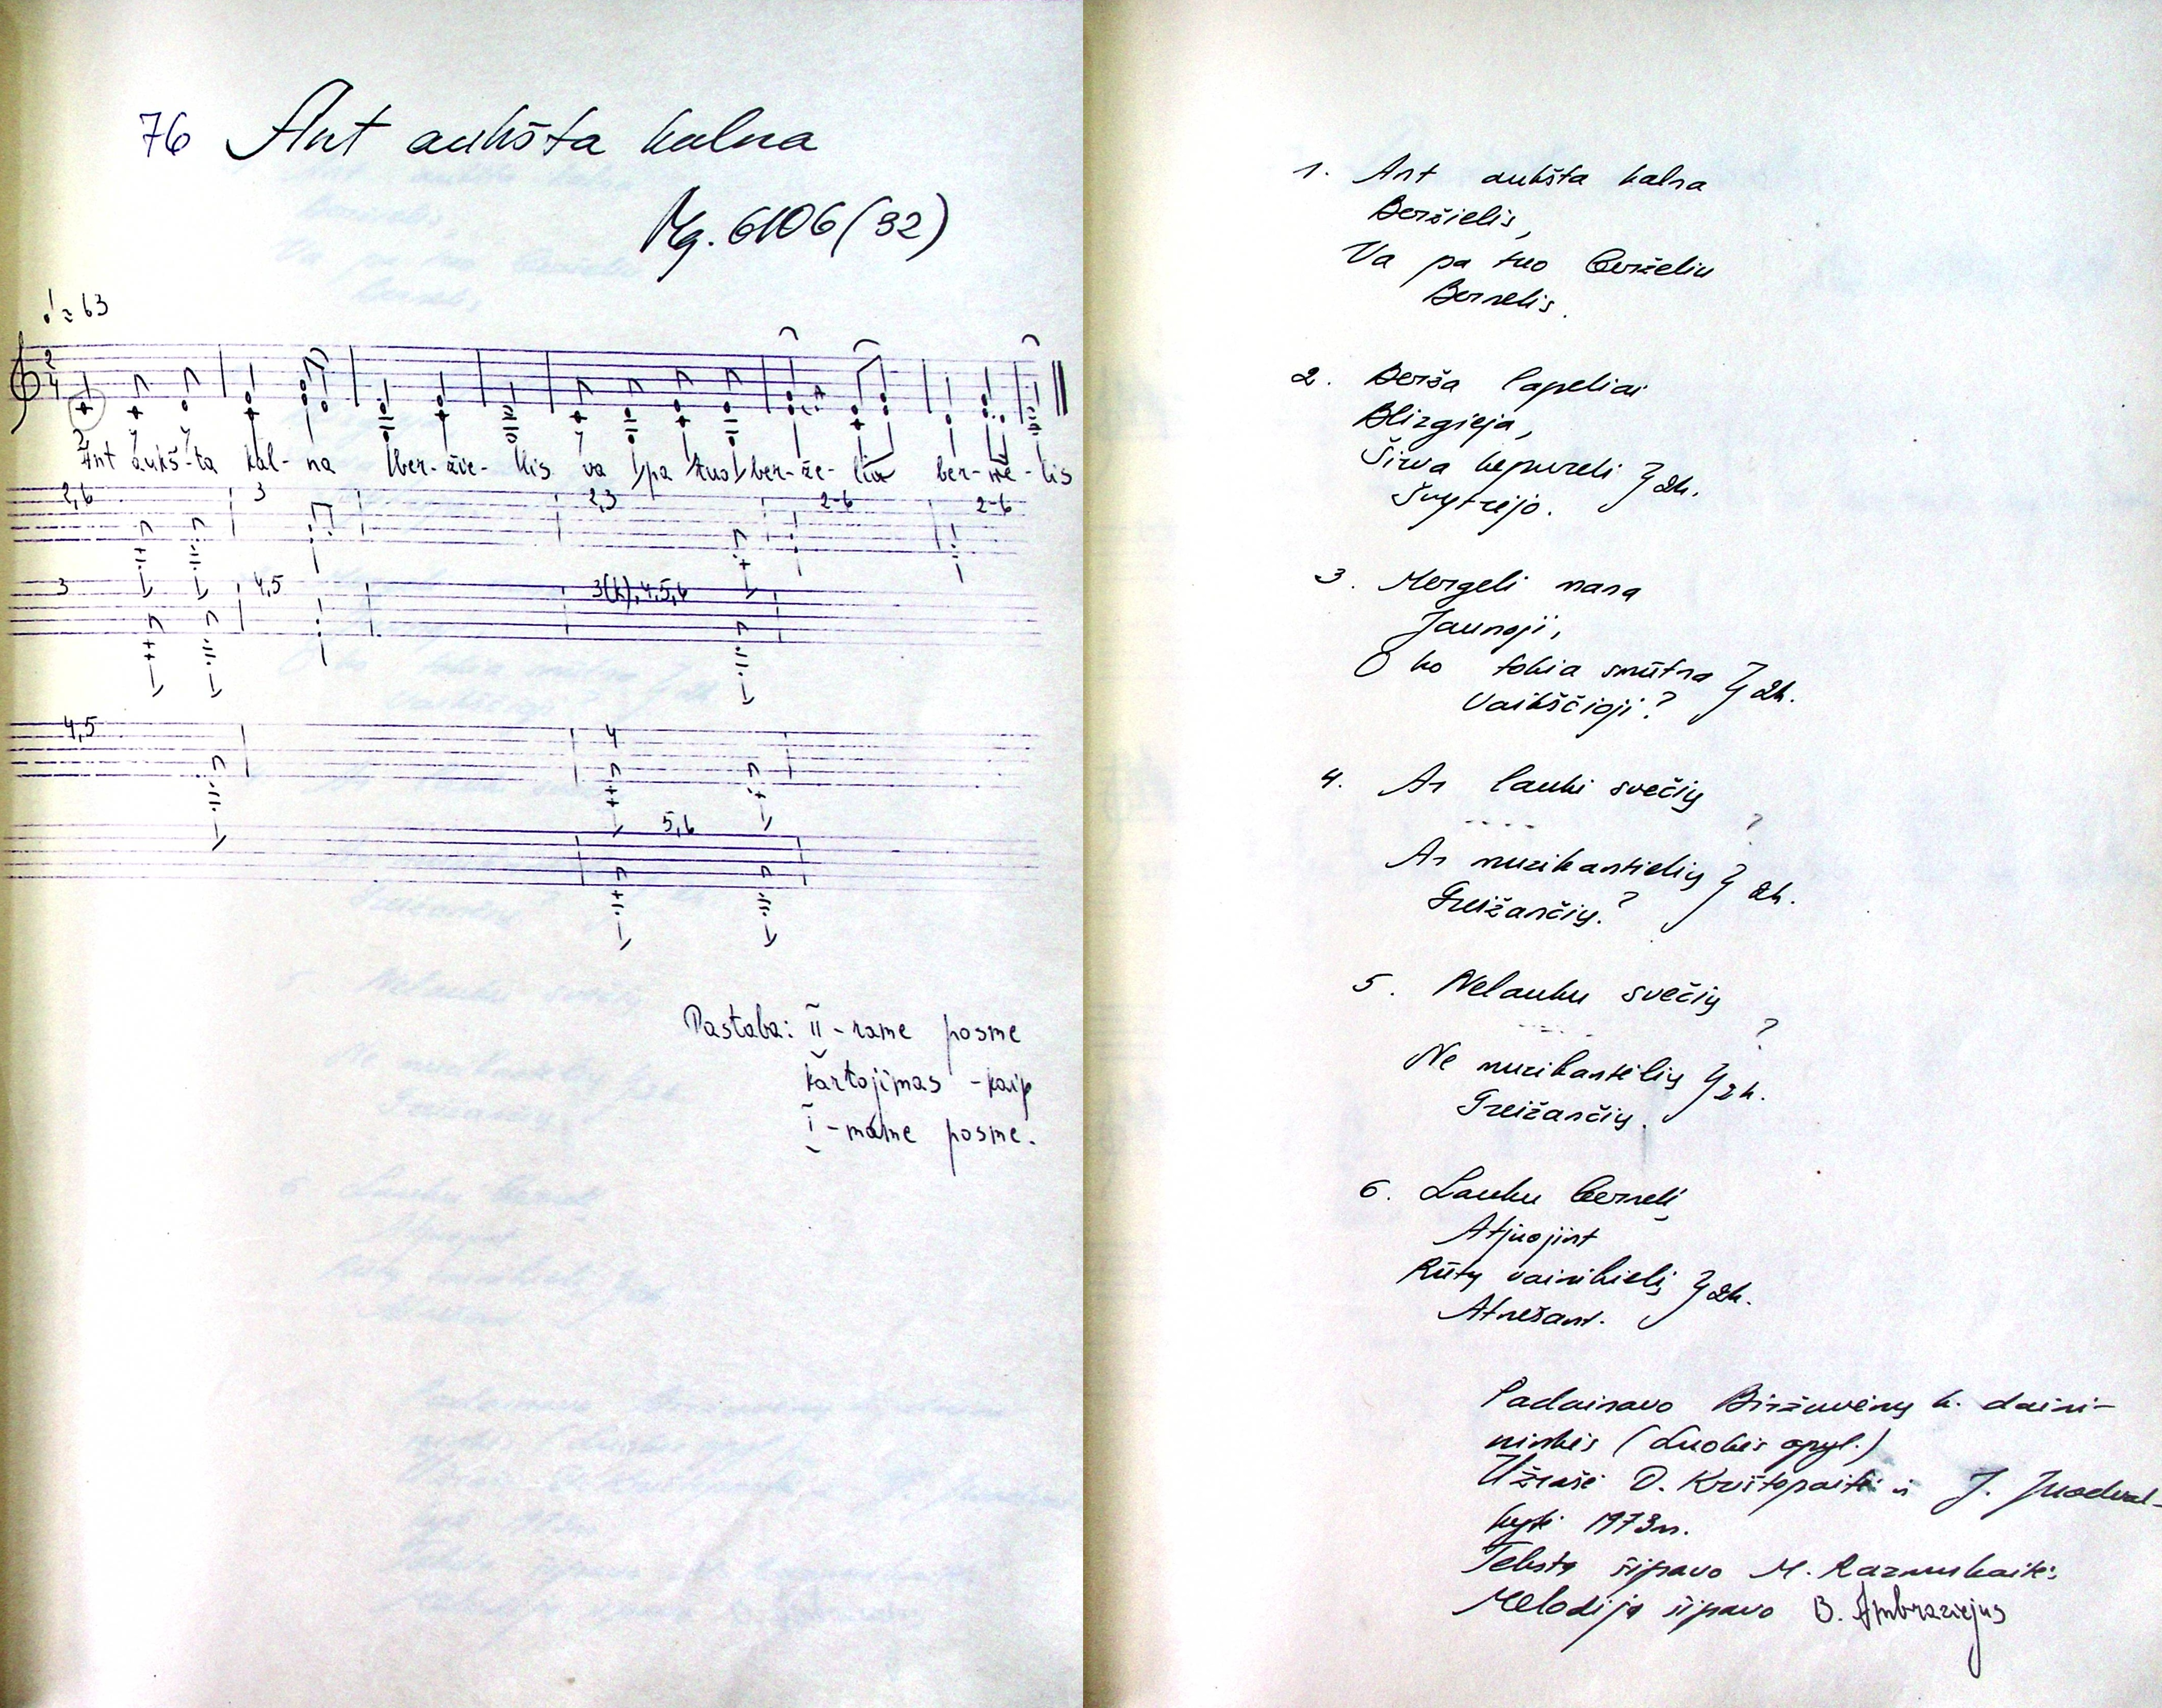 76 Ant aukšta kalna
Mg. 6106 (32)
♩ = 63
2
4
Ant aukš-ta kal-na ber-žie-lis va pa tuo ber-že-liu ber-ne-lis
2,6 3 2,3 2-6 2-6
3 4,5 3(k),4,5,6
4,5 4
5,6
Pastaba: II-rame posme
kartojimas - kaip
I-mame posme.
1. Ant aukšta kalna
Beržielis,
Va pa tuo berželiu
Bernelis.
2. Berža lapeliai
Blizgieja,
Širva kepureli } 2k.
Švytrėjo.
3. Mergeli mana
Jaunoji,
O ko tokia smūtna } 2k.
Vaikščioji?
4. Ar lauki svečių
- - - - ?
Ar muzikantielių } 2k.
Greižančių?
5. Nelauku svečių
- - - - ?
Ne muzikantėlių } 2k.
Greižančių.
6. Lauku bernelį
Atjuojint
Rūtų vainikielį } 2k.
Atnešant.
Padainavo Biržuvėnų k. daini-
ninkės (Luokės apyl.)
Užrašė D. Krištopaitė ir J. Juodval-
kytė 1973 m.
Tekstą šifravo M. Razmukaitė
Melodiją šifravo B. Ambraziejus